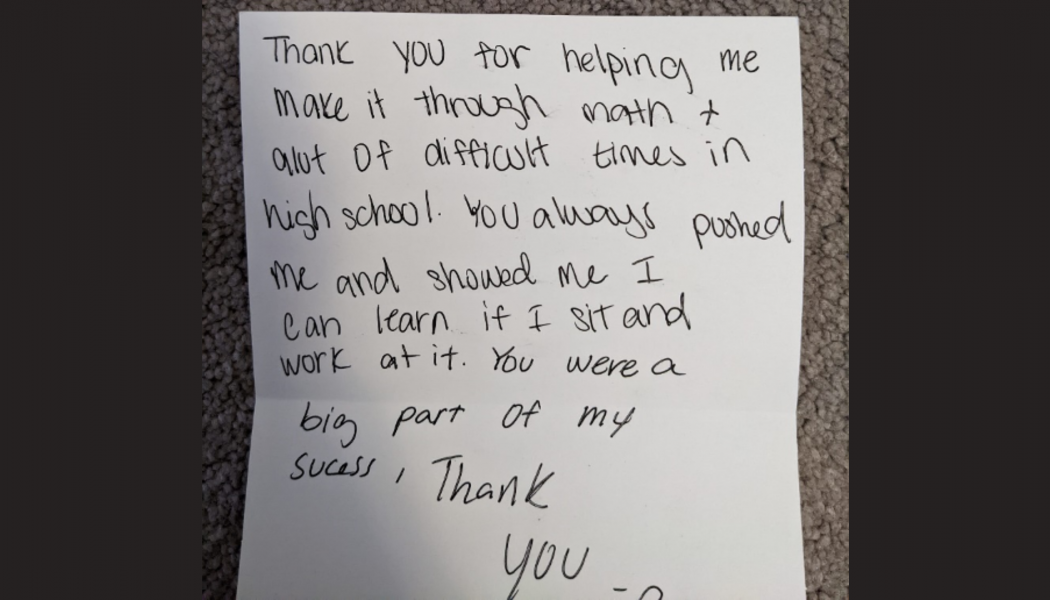 Thank you for helping me
make it through math +
alot of difficult times in
high school. You always pushed
me and showed me I
can learn if I sit and
work at it. You were a
big part of my
sucess, Thank
you